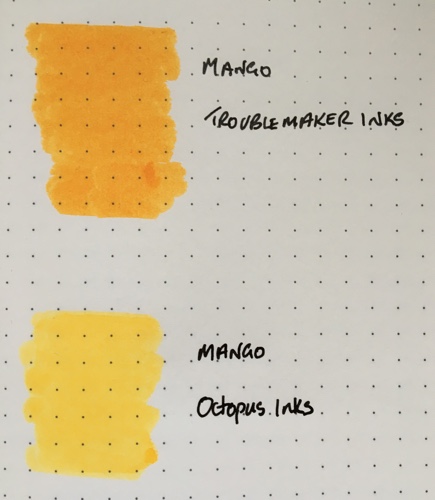 MANGO
TROUBLEMAKER INKS
MANGO
Octopus Inks